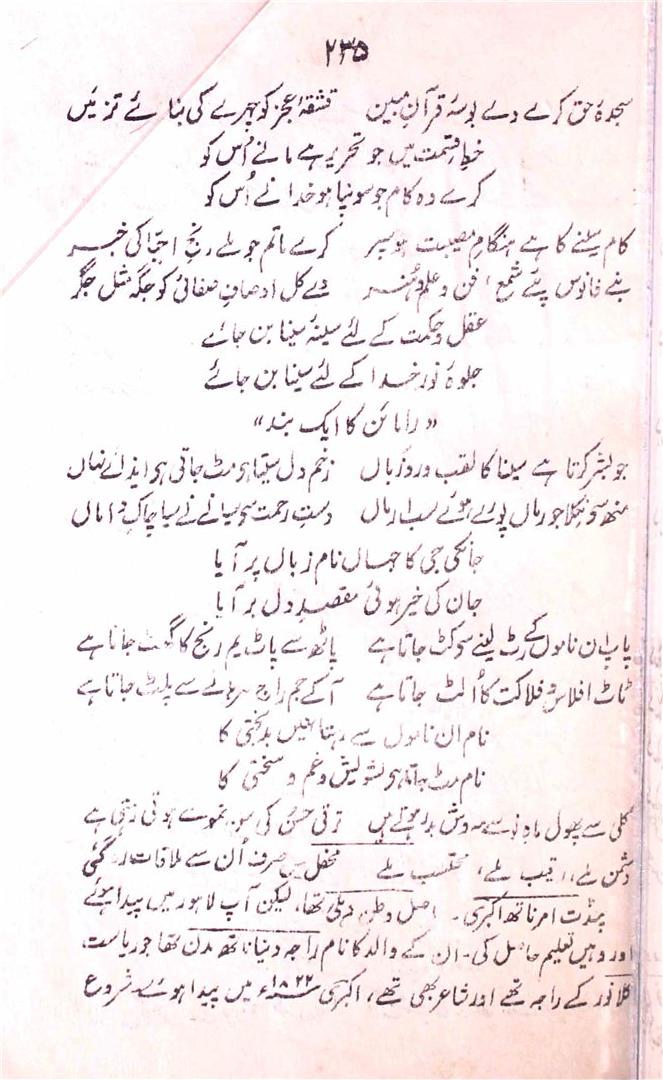 ۲۳۵
سجدۂ حق کرے دے بوسۂ قرآنِ مبین قشقۂ عجز کو چہرے کی بنائے تزئیں
خطِ قسمت میں جو تحریر ہے مانے اُس کو
کرے وہ کام جو سونپا ہو خدا نے اُس کو
کام سینے کا ہے ہنگامِ مصیبت ہو سپر کرے ماتم جو ملے رنجِ احبّا کی خبر
بنے فانوس پئے شمع فن و علم و ہنر دے کل اوصافِ صفائی کو جگہ مثل جگر
عقل و حکمت کے لئے سینہ سینا بن جائے
جلوۂ نورِ خدا کے لئے سینا بن جائے
"رامائن کا ایک بند"
جو بشر کرتا ہے سیتا کا لقب وردِ زباں زخم دل سیتا ہی مٹ جاتی ہی ایذائے نہاں
منھ سو نکلا جو رماں پورے ہوئے سب ارماں دستِ رحمت سو سیا نے نے سیا چاکِ داماں
جانکی جی کا جہاں نام زباں پر آیا
جان کی خیر ہوئی مقصدِ دل بر آیا
پاپ ان ناموں کے رٹ لینے سو کٹ جاتا ہے پاٹھ سے پاٹ یم رنج کا گھٹ جاتا ہے
ٹاٹ افلاس و فلاکت کا اُلٹ جاتا ہے آ کے جم راج سرہانے سے پلٹ جاتا ہے
نام ان ناموں سے رہتا نہیں بدبختی کا
نام مٹ جاتا ہی تشویش و غم و سختی کا
کلی سے پھول ماہِ نو سے مہ وش بدر ہوتے ہیں ترقی حسن کی سن نمو سے ہوتی رہتی ہے
دشمن ملے، رقیب ملے، محتسب ملے محفل میں صرف اُن سے ملاقات رہ گئی
پنڈت امرناتھ اکبری۔ اصل وطن دہلی تھا، لیکن آپ لاہور میں پیدا ہوئے
اور وہیں تعلیم حاصل کی۔ ان کے والد کا نام راجہ دینا ناتھ مدن تھا جو ریاست
کلانور کے راجہ تھے اور شاعر بھی تھے، اکبری ۱۸۲۲ء میں پیدا ہوئے۔ شروع